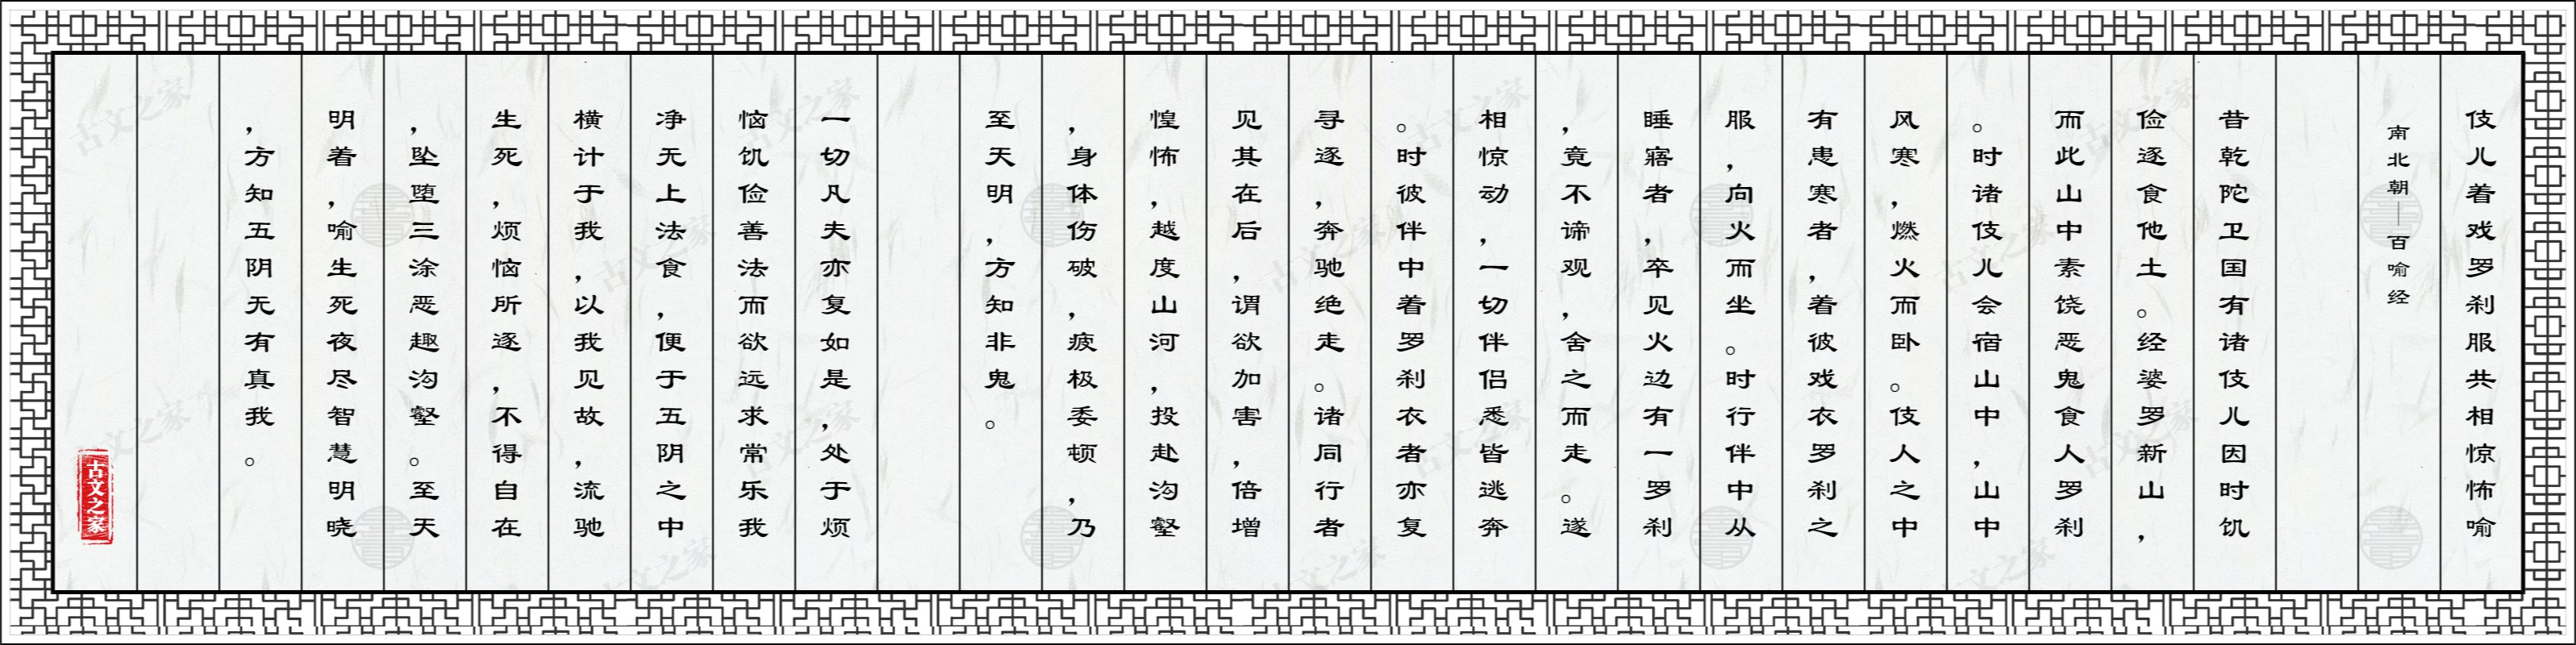 伎儿着戏罗刹服共相惊怖喻
南北朝—百喻经
昔乾陀卫国有诸伎儿因时饥
俭逐食他土。经婆罗新山，
而此山中素饶恶鬼食人罗刹
。时诸伎儿会宿山中，山中
风寒，燃火而卧。伎人之中
有患寒者，着彼戏衣罗刹之
服，向火而坐。时行伴中从
睡寤者，卒见火边有一罗刹
，竟不谛观，舍之而走。遂
相惊动，一切伴侣悉皆逃奔
。时彼伴中着罗刹衣者亦复
寻逐，奔驰绝走。诸同行者
见其在后，谓欲加害，倍增
惶怖，越度山河，投赴沟壑
，身体伤破，疲极委顿，乃
至天明，方知非鬼。
一切凡夫亦复如是，处于烦
恼饥俭善法而欲远求常乐我
净无上法食，便于五阴之中
横计于我，以我见故，流驰
生死，烦恼所逐，不得自在
，坠堕三涂恶趣沟壑。至天
明着，喻生死夜尽智慧明晓
，方知五阴无有真我。
古文之家